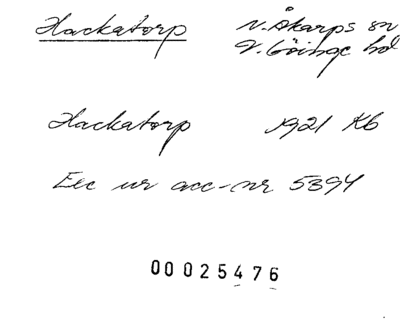 Hackatorp V. Åkarps sn
V. Göinge hd
Hackatorp 1921 Kb
Exc ur acc-nr 5394
00025476